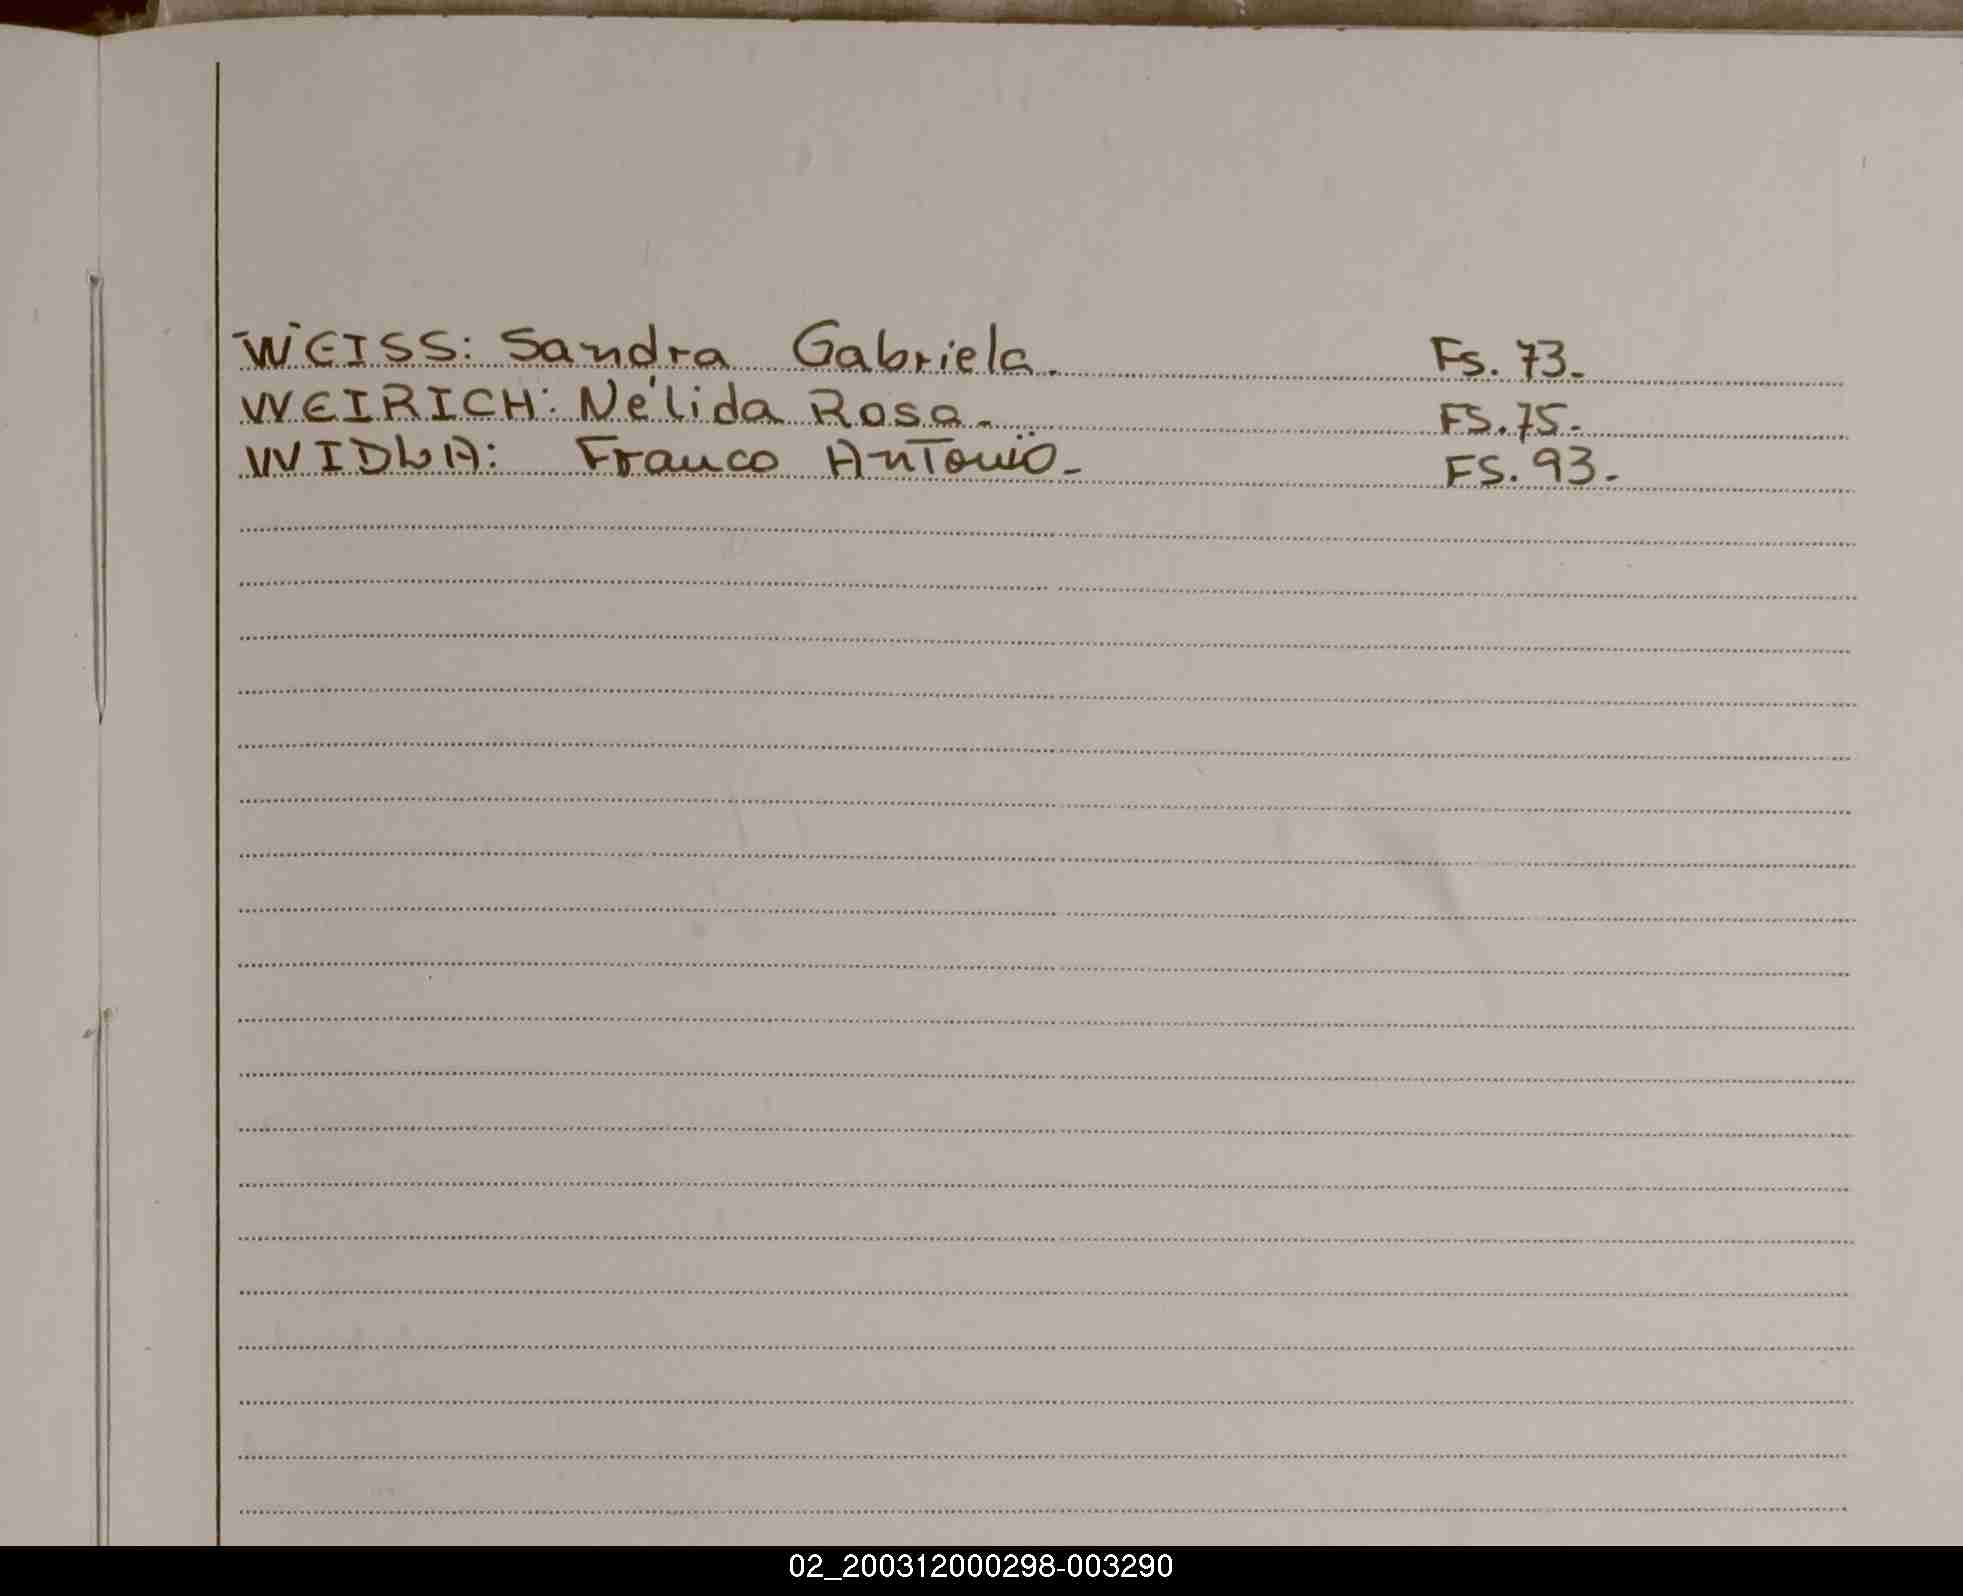 WEISS: Sandra Gabriela. Fs. 73.-
WEIRICH: Nélida Rosa.- FS. 75.-
Franco Antonio.- FS. 93.-
02_200312000298-003290